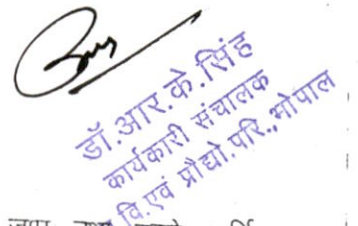 डॉ.आर.के.सिंह
कार्यकारी संचालक
वि.एवं प्रौद्यो.परि.,भोपाल